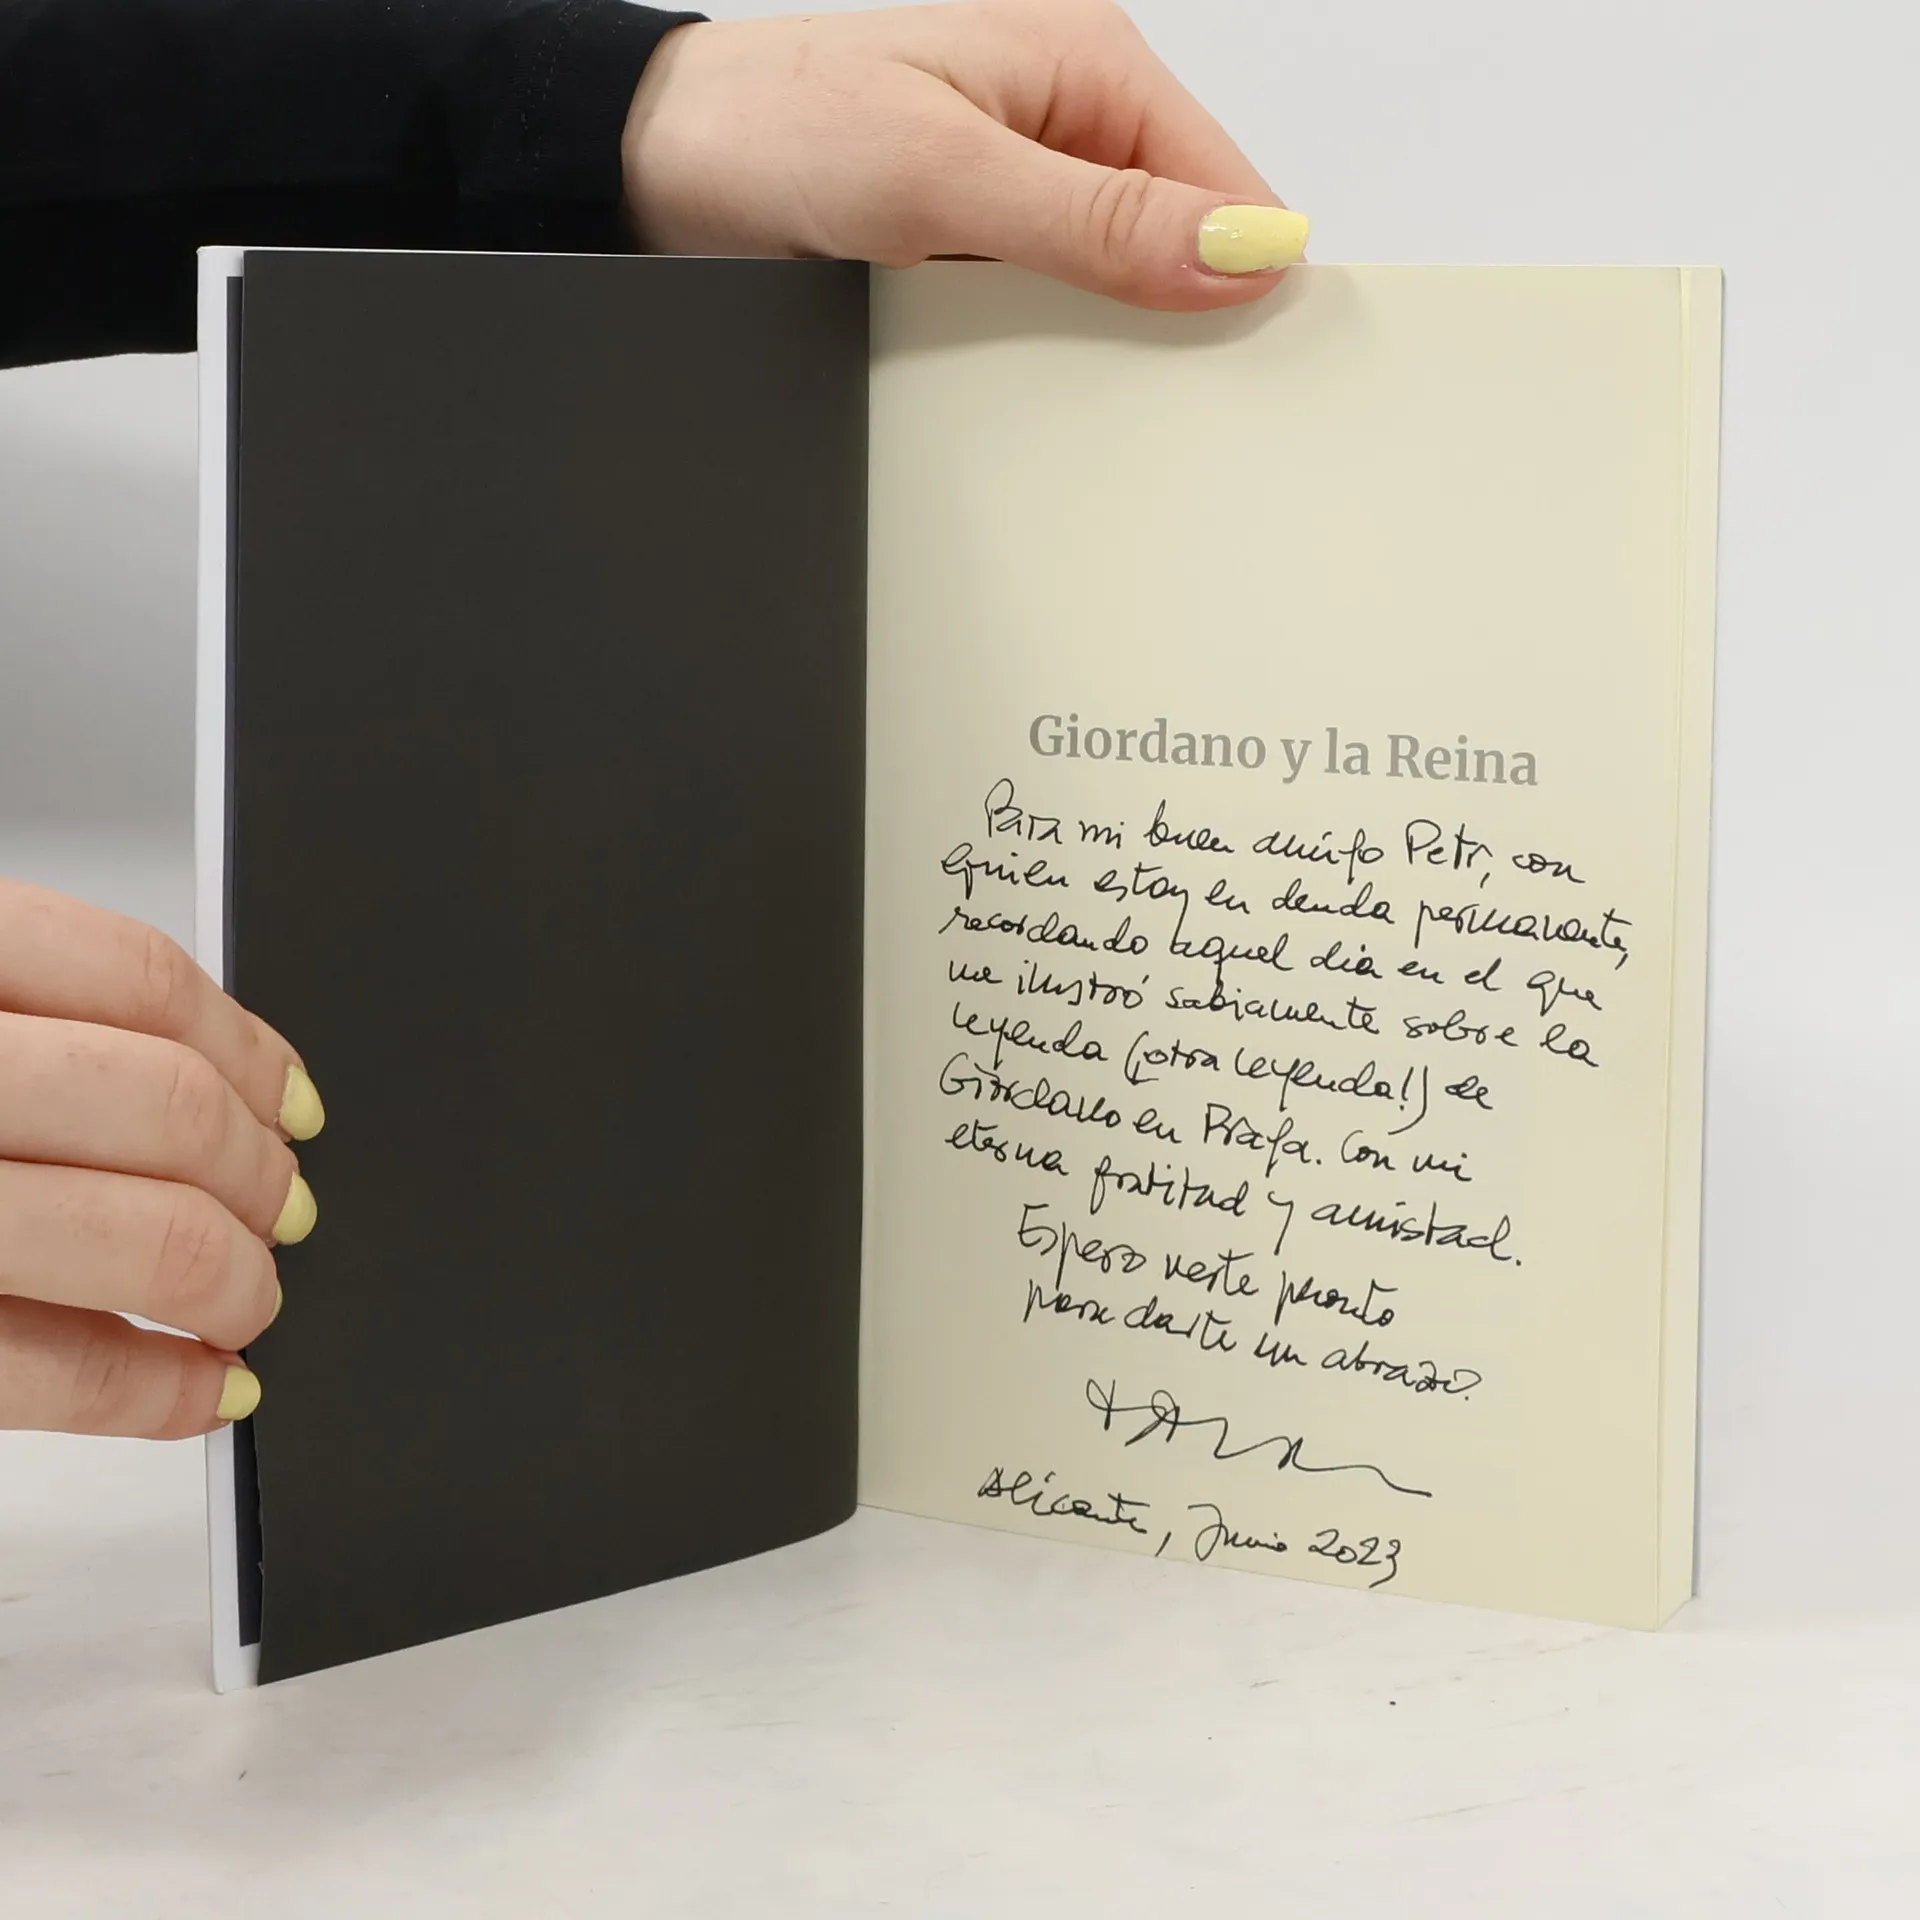 Giordano y la Reina
Para mi buen amigo Petr, con
quien estoy en deuda permanente,
recordando aquel día en el que
me ilustró sabiamente sobre la
leyenda (¡otra leyenda!) de
Giordano en Praga. Con mi
eterna gratitud y amistad.
Espero verte pronto
para darte un abrazo.
Alicante, Junio 2023